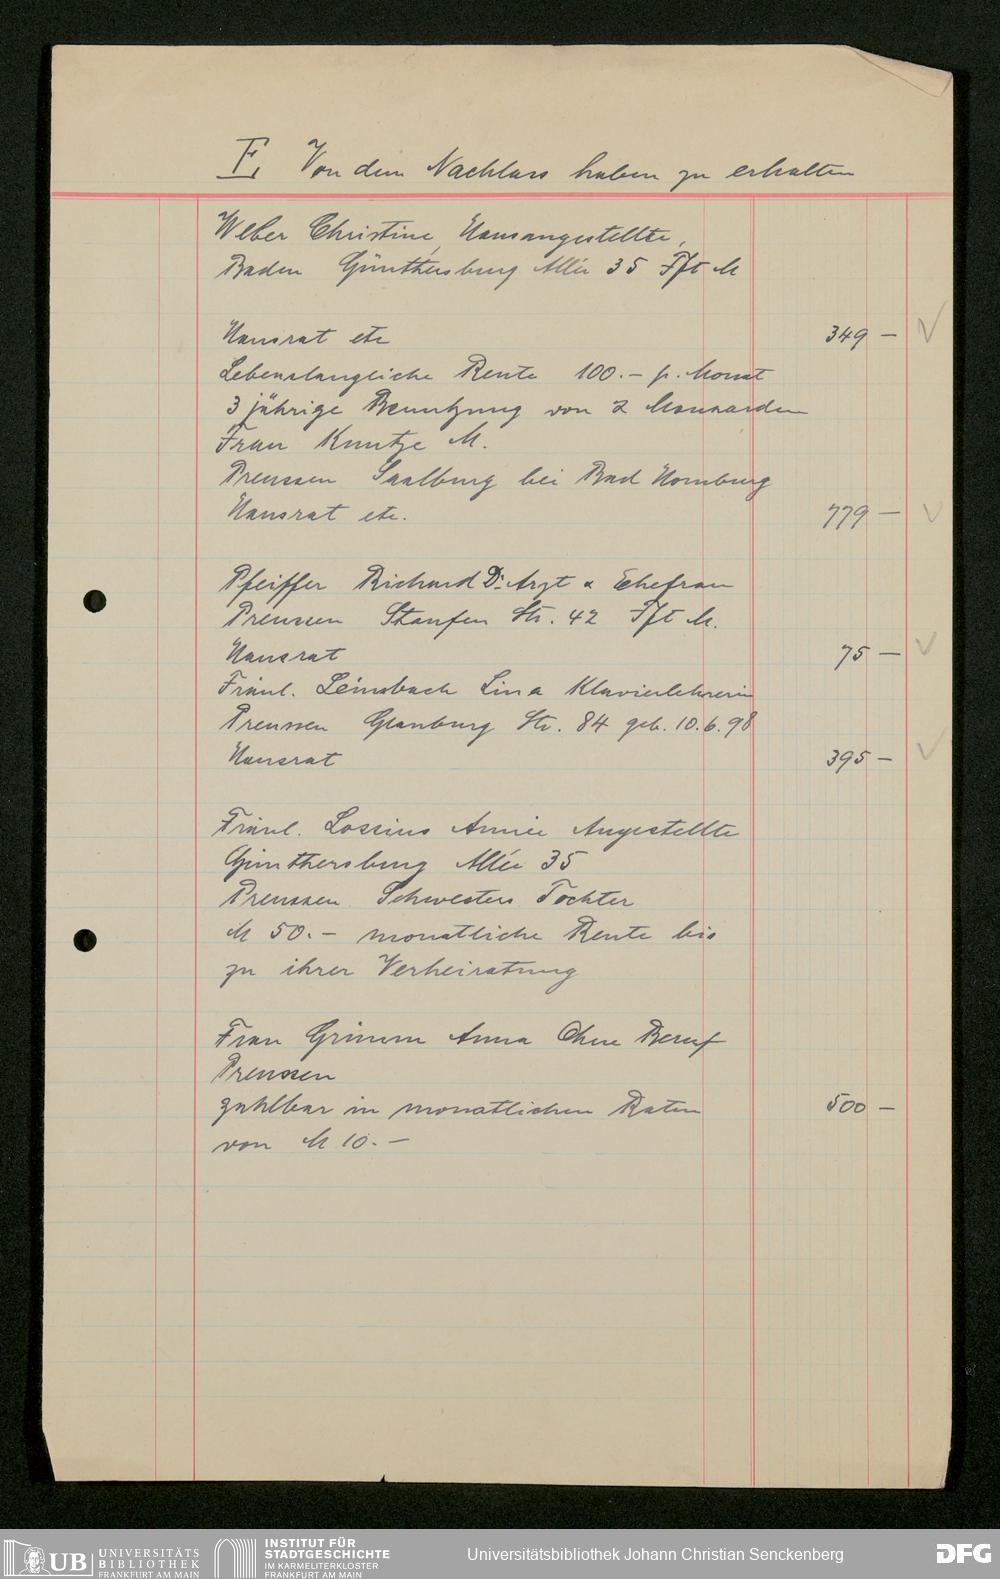 F. Von dem Nachlass haben zu erhalten
Weber Christine, Hausangestellte,
Baden Günthersburg Allée 35 Fft M
Hausrat etc 349 –
Lebenslangliche Rente 100.– p. Monat
3 jährige Benutzung von 2 Mansarden
Frau Kuntze M.
Preussen Saalburg bei Bad Homburg
Hausrat etc. 779 –
Pfeiffer Richard Dr. Arzt & Ehefrau
Preussen Staufen Str. 42 Fft M.
Hausrat 75 –
Fräul. Leimbach Lina Klavierlehrerin
Preussen Glauburg Str. 84 geb. 10.6.98
Hausrat 395 –
Fräul. Lossius Annie Angestellte
Günthersburg Allée 35
Preussen Schwesters Tochter
M 50.– monatliche Rente bis
zu ihrer Verheiratung
Frau Grimm Anna Ohne Beruf
Preussen
zahlbar in monatlichen Raten 500 –
von M 10.–
UB UNIVERSITÄTS
BIBLIOTHEK
FRANKFURT AM MAIN
INSTITUT FÜR
STADTGESCHICHTE
IM KARMELITERKLOSTER
FRANKFURT AM MAIN
Universitätsbibliothek Johann Christian Senckenberg
DFG